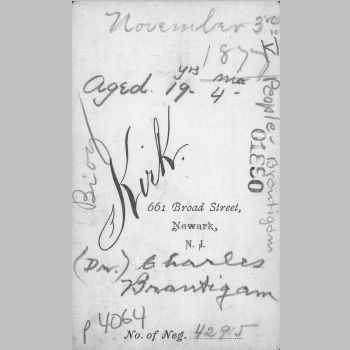 November 3rd
1877
yrs mo
Aged. 19- 4-
V People-Brautigam
01880
Biog
Kirk.
661 Broad Street,
Newark,
N. J.
(Dr.) Charles
Brautigam
p4064
No. of Neg. 4295